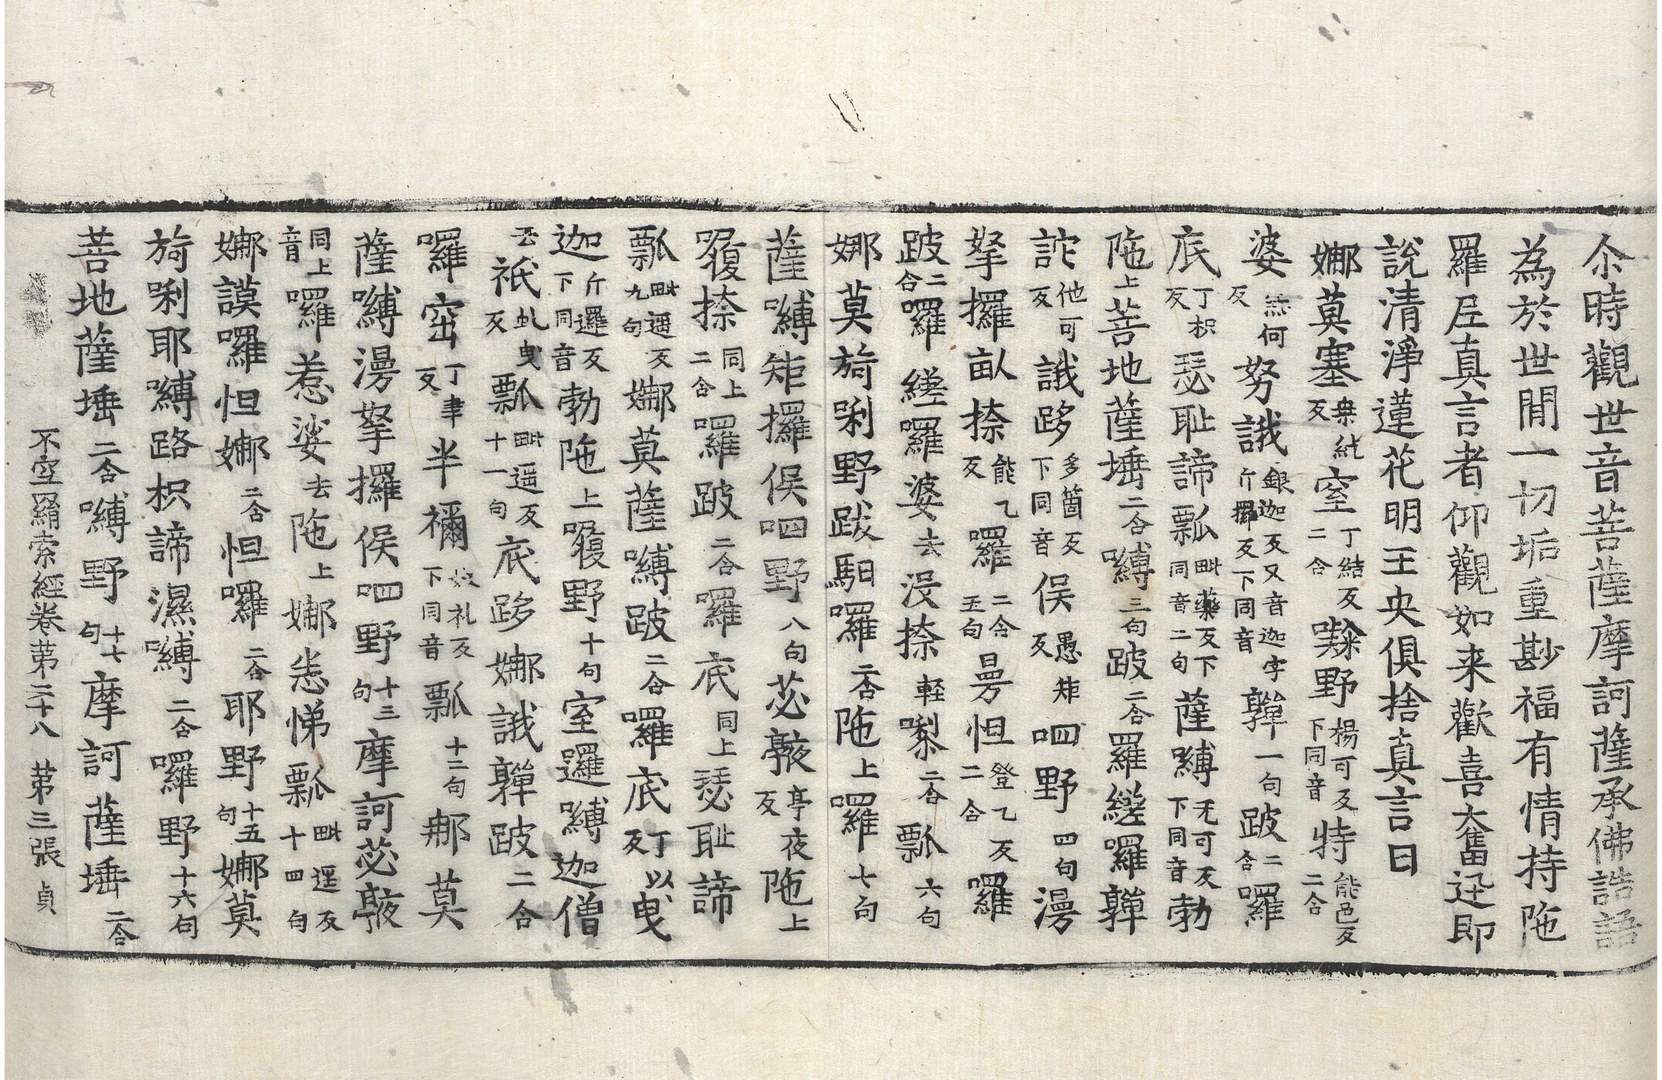 尒時觀世音菩薩摩訶薩承佛誥語
為於世間一切垢重尠福有情持陁
羅𡰱真言者仰觀如来歡喜奮迅即
說清淨蓮花明王央俱捨真言曰
娜莫塞桒紇反窒丁結反二合㗚野楊可反下同音特能邑反二合
婆 何反努誐銀迦反又音迦字斤攞反下同音亸一句跛二合囉
底丁枳反瑟耻諦瓢毗藥反下同音二句薩嚩无可反下同音勃
陁上菩地薩埵二合嚩三句跛二合羅纥囉亸
詑他可反誐跢多箇反下同音俁愚矩反呬野四句漫
拏攞畝捺能乙反囉二合五句曼怛登乙反二合囉
跛二合囉纥羅婆去没捺輕㗚二合瓢六句
娜莫旖唎野跋馹囉二合陁上囉七句
薩嚩矩攞俁呬野八句苾𩐈亭夜反陁上
㘁捺同上二合囉跛二合囉底同上瑟耻諦
瓢毗遥反九句娜莫薩嚩跛二合囉底丁以反曳
迦斤邏反下同音勃陁上㘁野十句室邏嚩迦僧
祇虬曳反瓢毗遥反十一句底跢娜誐亸跛二合
囉窋丁聿反半禰奴礼反下同音瓢十二句那莫
薩嚩漫拏攞俁呬野十三句摩訶苾𩐈
同上音囉惹娑去陁上娜恙悌瓢毗遥反十四句
娜謨囉怛娜二合怛囉二合耶野十五句娜莫
旖唎耶嚩路枳諦濕嚩二合囉野十六句
菩地薩埵二合嚩野十七句摩訶薩埵二合
不空羂索經卷第二十八　第三張　貞